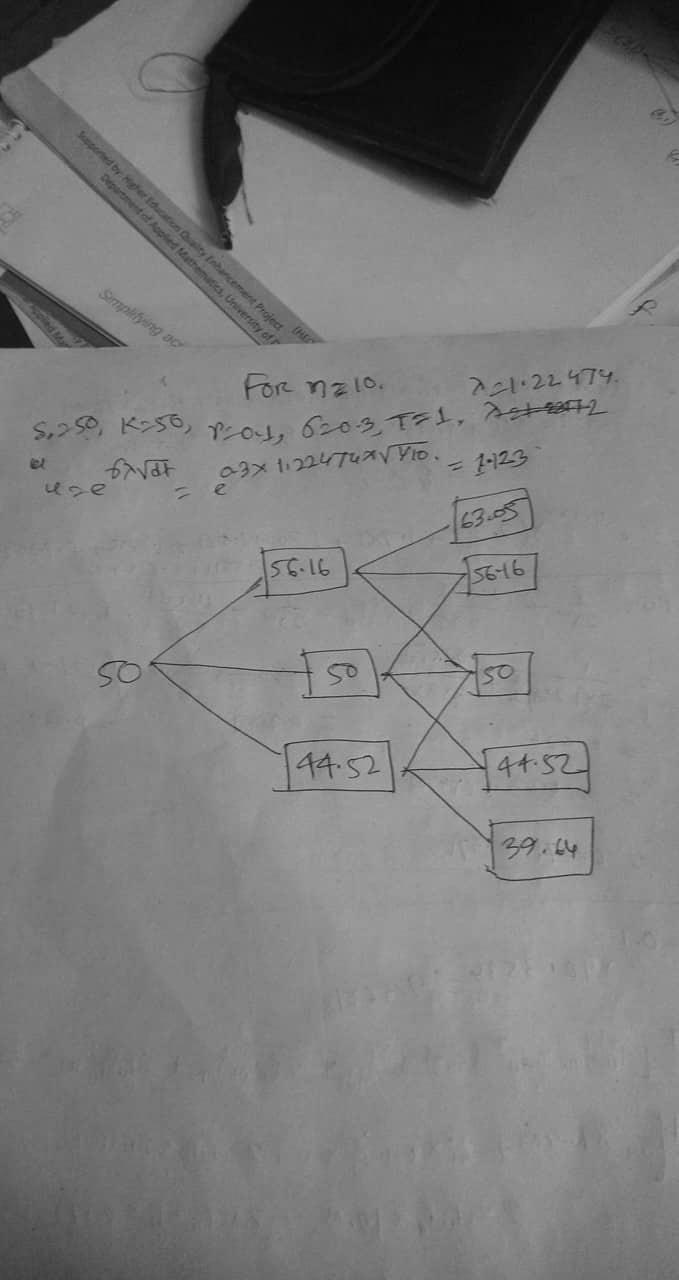 Supported by: Higher Education Quality Enhancement Project (HE
Department of Applied Mathematics, University of
Simplifying
For n=10. λ=1.22474.
S₀=50, K=50, r=0.1, σ=0.3, T=1,
u=e^σλ√dt = e^0.3×1.22474×√1/10. = 1.123
63.05
56.16 56.16
50 50 50
44.52 44.52
39.64